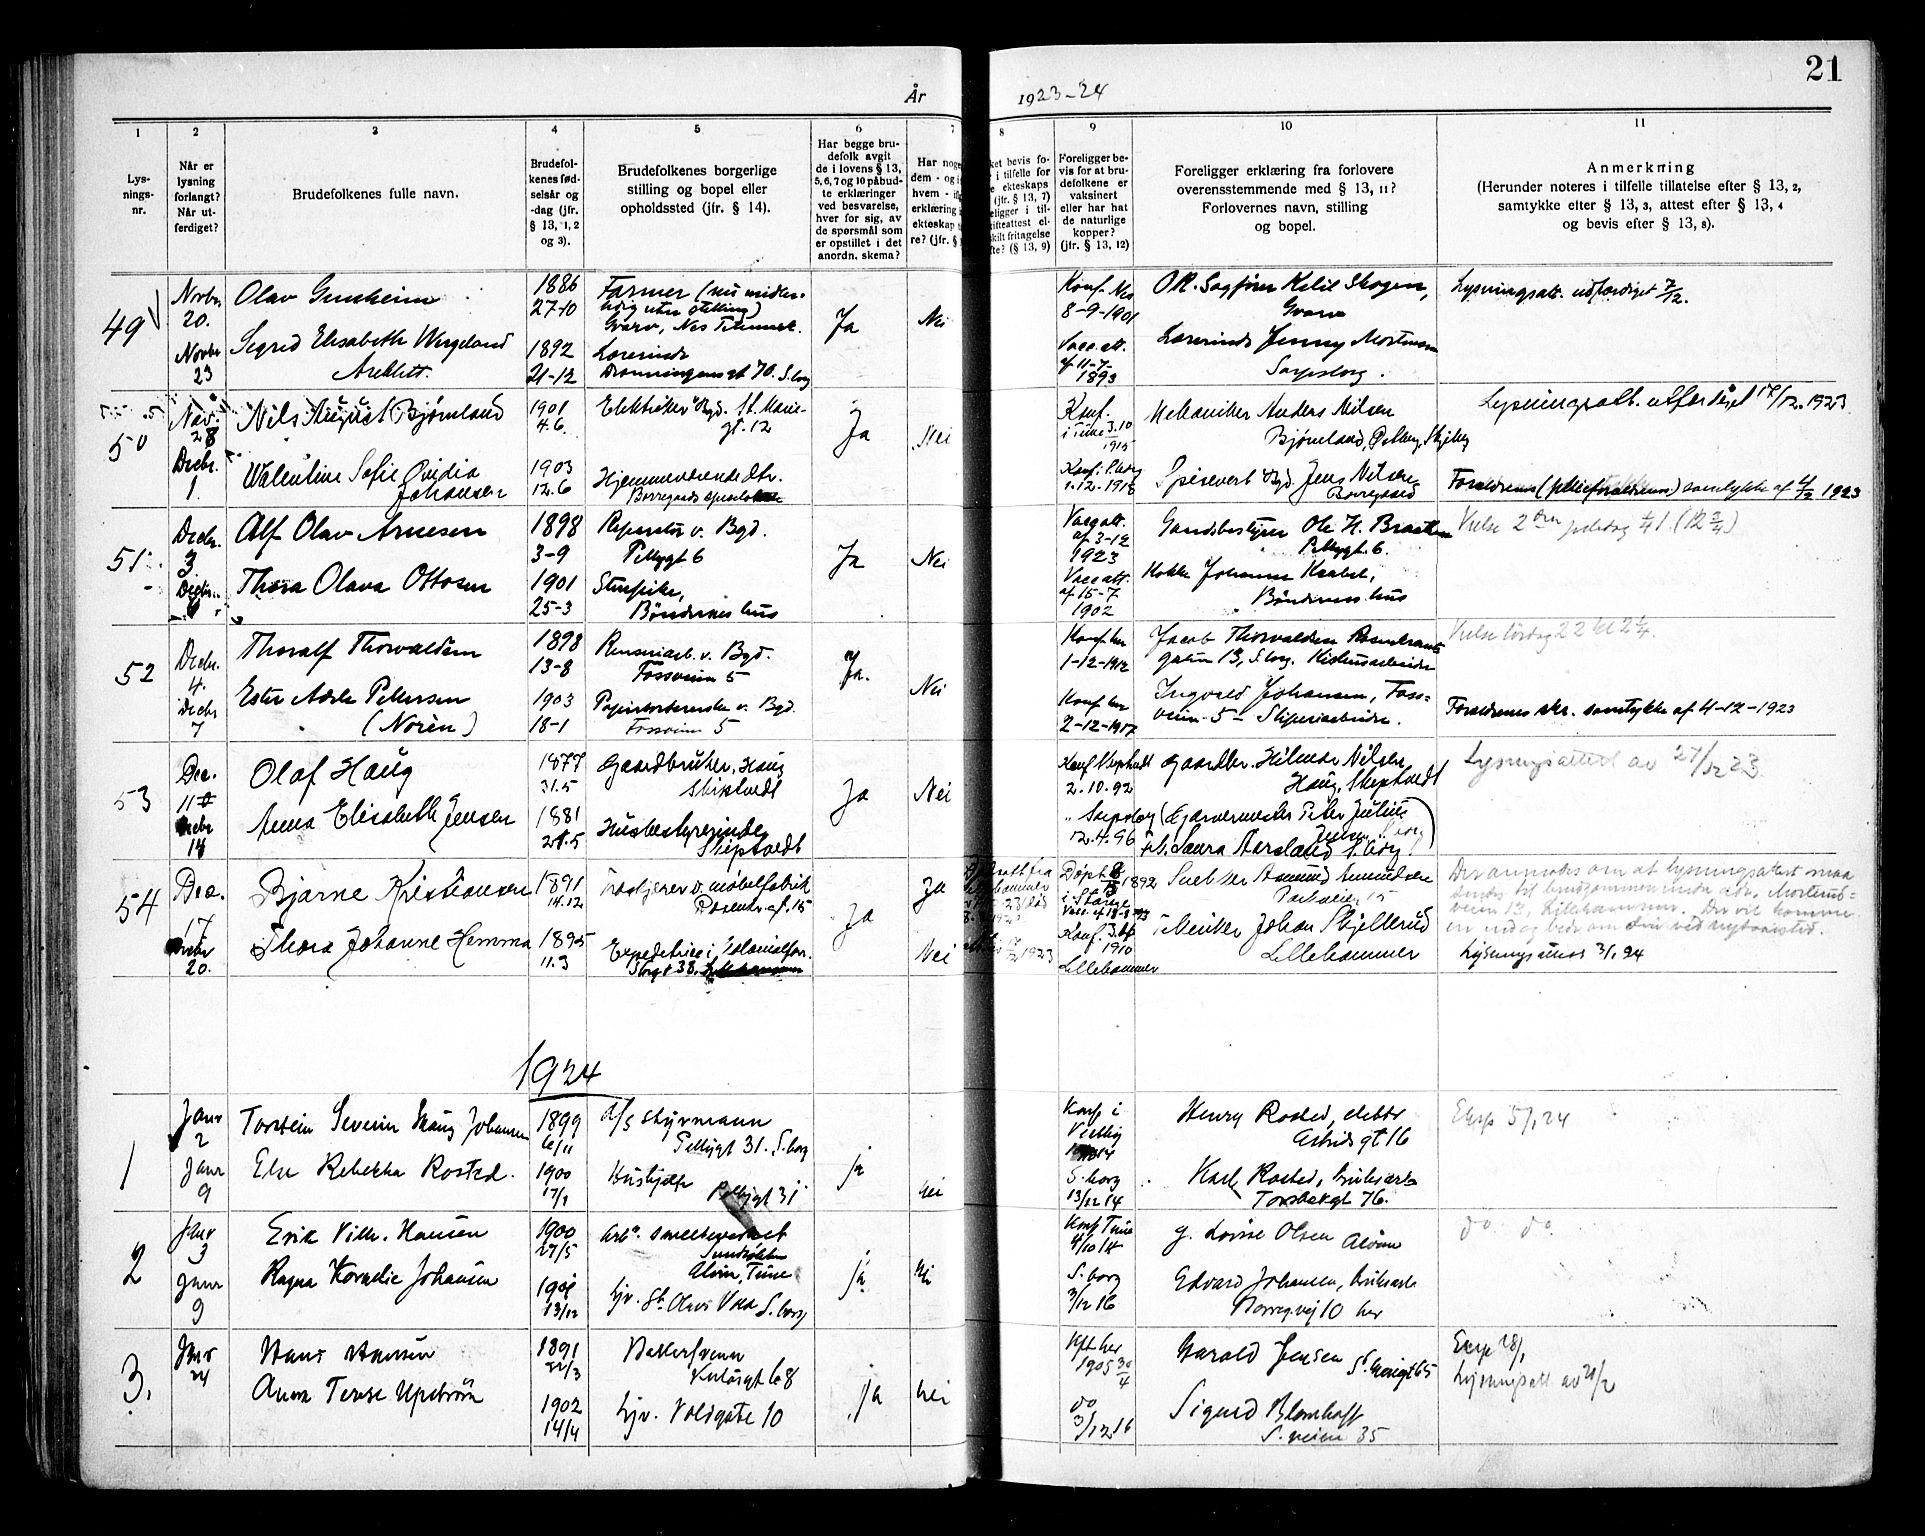 21
År 1923-24
1 2 3 4 5 6 7 8 9 10 11
Lys-
nings-
nr.
Når er
lysning
forlangt?
Når ut-
ferdiget?
Brudefolkenes fulle navn.
Brudefol-
kenes fød-
selsår og
-dag (jfr.
§ 13, 1, 2
og 3).
Brudefolkenes borgerlige
stilling og bopel eller
opholdssted (jfr. § 14).
Har begge bru-
defolk avgit
de i lovens § 13,
5, 6, 7 og 10 påbud-
te erklæringer
ved besvarelse,
hver for sig, av
de spørsmål som
er opstillet i det
anordn. skema?
Har noge
dem - og i
hvem - if
erklæring i
ekteskap t
re? (jfr. §
ket bevis fo-
i tilfelle for
e ekteskaps
(jfr. § 13, 7)
eligger i til-
kifteattest el
skilt fritagelse
fte? (§ 13, 9)
Foreligger be-
vis for at bru-
defolkene er
vaksinert
eller har hat
de naturlige
kopper?
(jfr. § 13, 12)
Foreligger erklæring fra forlovere
overensstemmende med § 13, 11?
Forlovernes navn, stilling
og bopel.
Anmerkning
(Herunder noteres i tilfelle tillatelse efter § 13, 2,
samtykke efter § 13, 3, attest efter § 13, 4
og bevis efter § 13, 8).
49
Novbr.
20.
Novbr
23
Olav Gunheim
Sigrid Elisabeth Wergeland
1886
27-10
1892
21-12
Farmer (nu midler-
tidig uten stilling)
Gvarv, Nes Telemark.
Lærerinde
Dronningens gt 70. S.borg
Ja
Nei
Konf. Nes
8-9-1901
Vacc. att.
af 11-7-
1893
O.R. Sagfører Ketil Skogen,
Gvarv
Lærerinde Jenny Mortensen
Sarpsborg.
Lysningsatt. udfærdiget 7/12.
50
Nov.
28
Decbr.
1.
Nils August Bjørnland
Walentine Sofie Ovidia
Johansen
1901
4.6.
1903
12.6
Elektriker Bgd. St. Marie-
gt. 12
Hjemmeværende dtr.
Ja
Nei
Konf.
i Tune 3.10
1915
Konf. S.borg
1.12.1918
Mekaniker Anders Nilsen
Bjørnland,
Spisevert Bgd. Jens Nilsen
Borregaard
Lysningsatt. utfærdiget 17/12.1923
Forældrenes (pleieforældrenes) samtykke af 4/12 1923
51
Decbr.
3
Alf Olav Arnesen
Thora Olava Ottosen
1898
3-9
1901
25-3
Reperatør v. Bgd.
Pellygt 6
Stuepike,
Bøndernes hus
Ja
Nei
Vacc att.
af 3-12
1923
Vacc att.
af 15-7
1902
Gaardsbestyrer Ole H. Braathen
Pellygt. 6.
Kokke Johanna Krabel,
Bøndernes hus
Vielse 2den juledag
52
Decbr.
4.
Decbr
7
Thoralf Thorvaldsen
Ester Adele Pettersen
(Norèn)
1898
13-8
1903
18-1
Renseriarb. v. Bgd.
Fossveien 5
Papirsorterske v. Bgd.
Fossveien 5
Ja.
Nei
Konf. her
1-12-1912
Konf her
2-12-1917
Jacob Thorvaldsen Rosenkrantz
gaten 13, S.borg. Kishusarbeider
Ingvald Johansen, Foss-
veien 5 - Sliperiarbeider.
Vielse lørdag 22
Forældrenes skr. samtykke af 4-12-1923
53
Dec.
11
14
Olaf Haug
Anna Elisabeth Jensen
1877
31.5
1881
21.5
Gaardbruker, Haug
Skiptvedt
Husbestyrerinde
Skiptvedt
Ja
Nei
Konf Skiptvedt
2.10.92
" Sarpsborg
12.4.96
Gaardbr. Hilmar Nilsen
Haug, Skiptvedt
(Garvermester Peter Julius
Jensen S.borg)
frk. Laura Aarsland S.borg
Lysningsattest av 27/12 23.
54
Dec.
17
20.
Bjarne Kristiansen
Thora Johanne Hemma
1891
14.12
1895
11.3
møbelfabrik
Rosenkr. gt. 15
Expeditrice i kolonialfor.
Storgt 38. Lillehammer
Ja
Ja
Nei
Døpt
1892
i Stange
Konf. 3.
1910
Lillehammer
Snekker Amund Amundsen
15
Tekniker Johan Skjellerud
Lillehammer
Der anmodes om at lysningsattest maa
sendes til brudgommen under adr. Mortens-
veien 13, Lillehammer. Der vil komme
Lysningsattest 3/1 24
1924
1
Janr
2
Janr
9
Torstein Severin Haug Johansen
Else Rebekka Rosted.
1899
6/11
1900
17/1
A/S styrmann
Pellygt 31. S.borg
Hushjelp
Pellygt 31
ja
nei
Konf i
Vestby
1914
S.borg
13/12 14
Henry Rosted,
Astrids gt 16
Karl Rosted, bruksarb
Torsbekgt 76.
Eksp 5/1 24
2
Janr
3
Janr
9
Erik Vilh. Hansen
Ragna Kornelie Johansen
1900
27/5
1901
13/12
Arb. smelteverket
Sundløkken
Alvim, Tune
hjv. St. Olavs Vold S.borg
ja
nei
Konf Tune
4/10 14
S.borg
3/12 16
g. Lovise Olsen Alvim
Edvard Johansen, bruksarb
Borreg.vej 10 her
do do.
3.
Janr
24
Hans Hansen
Anna Terese Upstrøm
1891
22/3
1902
14/4
Bakersvenn
hjv. Voldgate 10
ja
nei
Kft her
1905 30/4
do
3/12 16
Harald Jensen St. Mariegt 65
Sigurd Blomhoff
S.veien 35
Eksp 28/1
Lysningsatt av 21/2